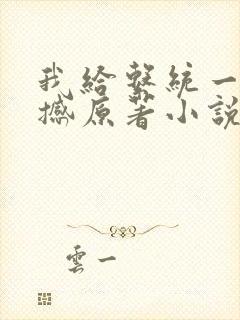 我給繫統一
撼原著小說
雲一